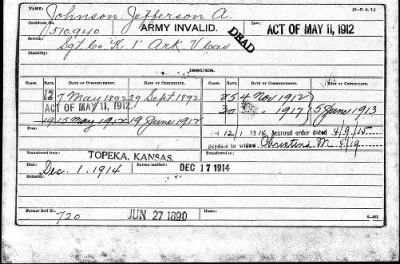 Name: Johnson Jefferson A. (3-C. A. I.)
Certificate No. 510940 ARMY INVALID. DEAD Law: ACT OF MAY 11, 1912
Service: Sgt Co. K. 1" Ark. V Cav
Disability:
CLASS. RATE. DATE OF COMMENCEMENT. DATE OF CERTIFICATE. CLASS. RATE. DATE OF COMMENCEMENT. DATE OF CERTIFICATE.
7 May 1892 29 Sept 1892 25 4 Nov 1912
ACT OF MAY 11, 1912. 30 1917 5 June 1913
19 15 May 1912 19 June 1912
12/1 1914 Accrued order dated
payable to widow Christina M.
Transferred from TOPEKA, KANSAS.
Died: Dec. 1. 1914 Bureau notified: DEC 17 1914
Remarks:
Former Roll No. 720 JUN 27 1890 Home: